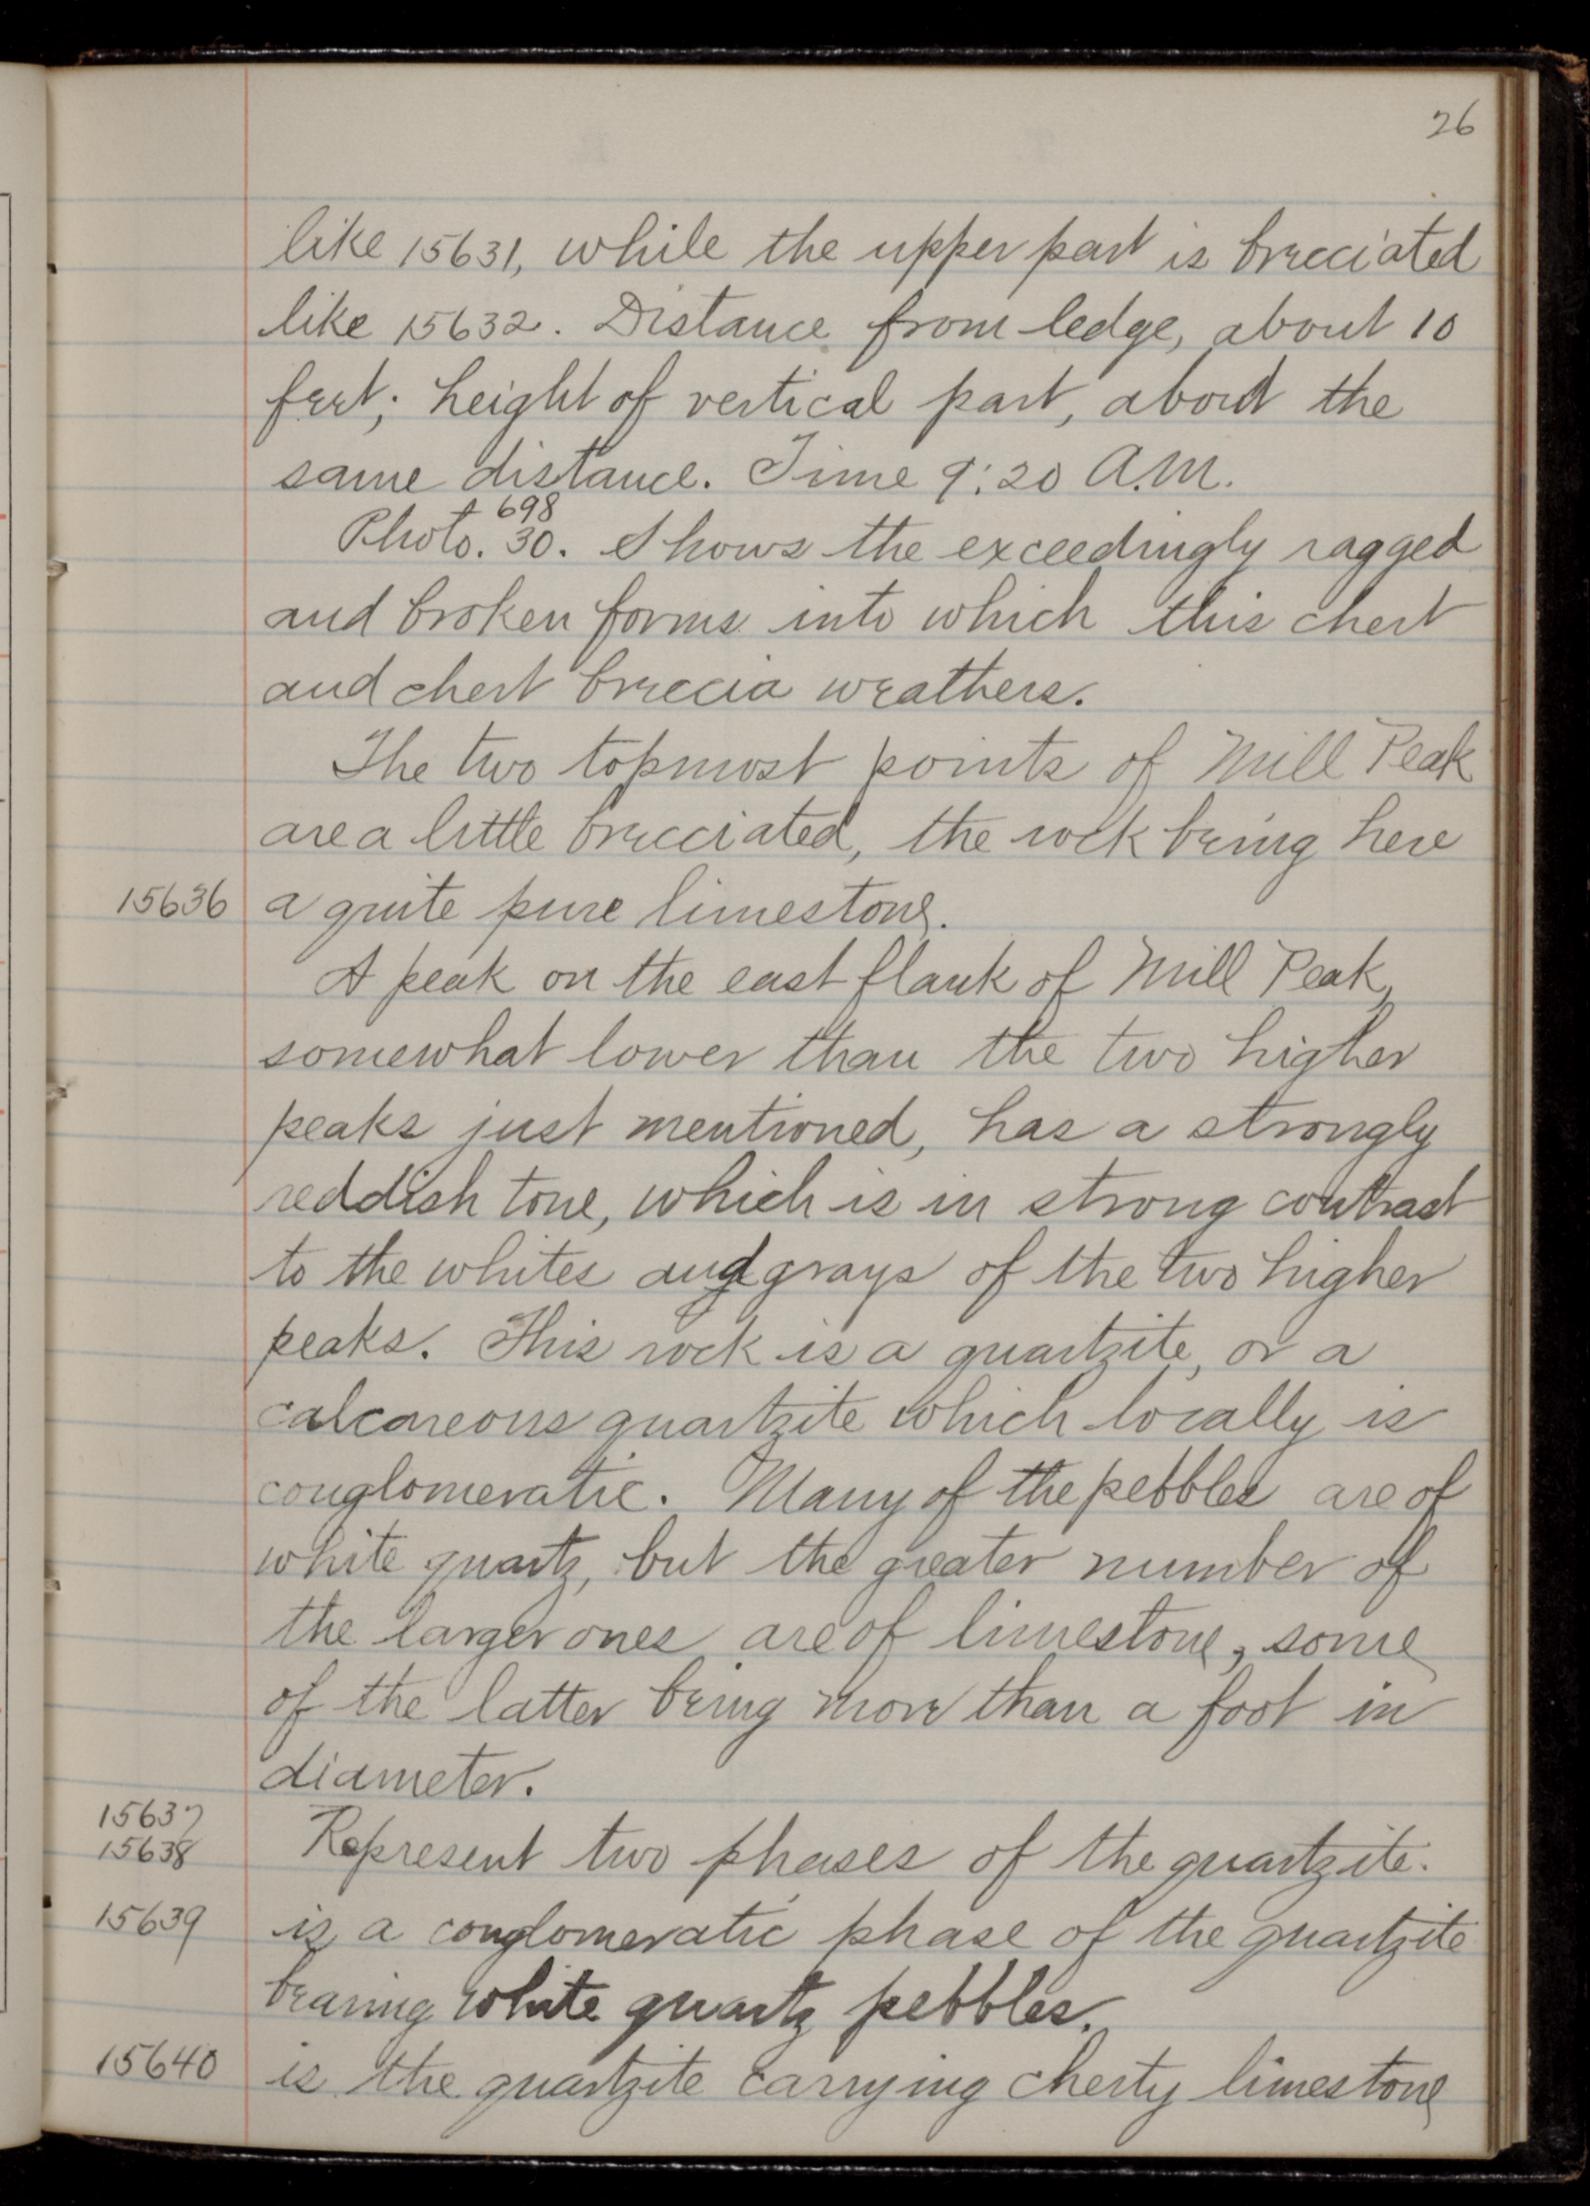 26
like 15631, while the upper part is brecciated
like 15632. Distance from ledge, about 10
feet; height of vertical part, about the
same distance. Time 9:20 A.M.
698
Photo. 30. Shows the exceedingly ragged
and broken forms into which this chert
and chert breccia weathers.
The two topmost points of Mill Peak
are a little brecciated, the rock being here
15636 a quite pure limestone.
A peak on the east flank of Mill Peak,
somewhat lower than the two higher
peaks just mentioned, has a strongly
reddish tone, which is in strong contrast
to the whites and grays of the two higher
peaks. This rock is a quartzite, or a
calcareous quartzite which locally is
conglomeratic. Many of the pebbles are of
white quartz, but the greater number of
the larger ones are of limestone, some
of the latter being more than a foot in
diameter.
15637
15638 Represent two phases of the quartzite.
15639 is a conglomeratic phase of the quartzite
bearing white quartz pebbles.
15640 is the quartzite carrying cherty limestone